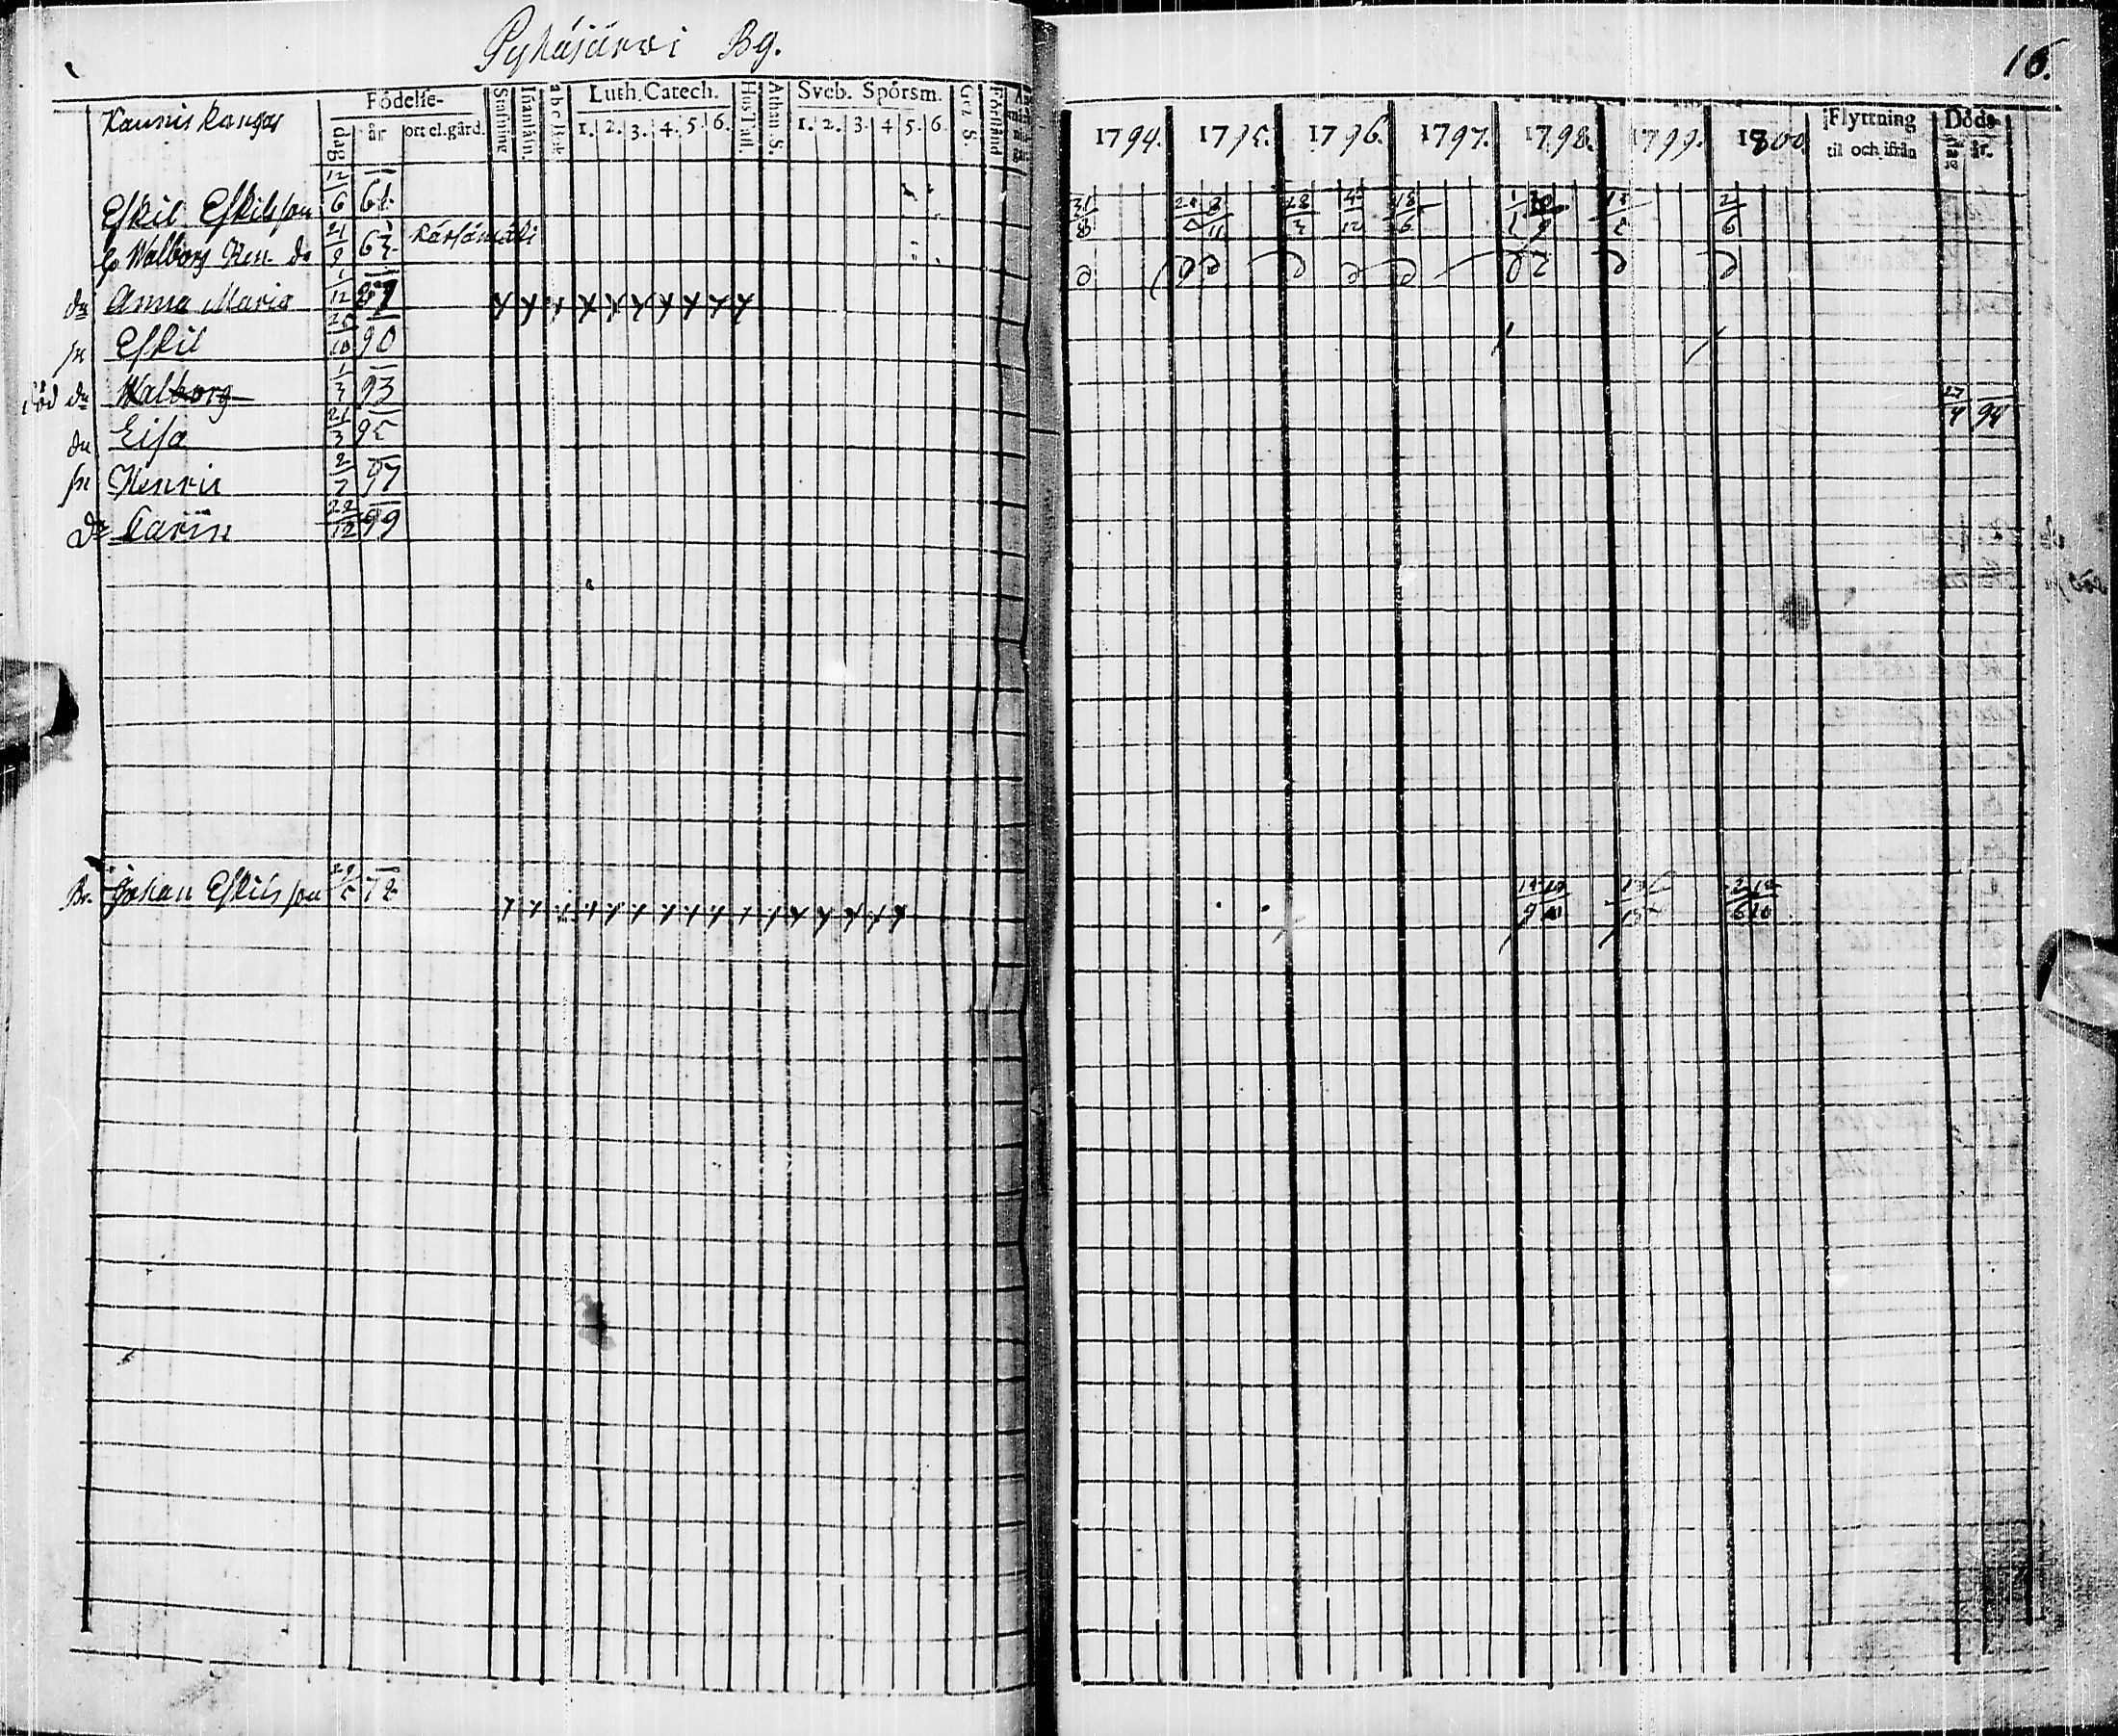 Pyhäjärvi By.
16.
Kauniskangas
Födelse-
dag
år
ort el. gård.
Stafning
Innanläsn.
a b c Bok
Luth. Catech.
1. 2. 3. 4. 5. 6.
Hus Tafl.
Athan. S.
Sveb. Spörsm.
1. 2. 3. 4 5. 6.
Gez. S.
Förstånd
1794. 1795. 1796. 1797. 1798. 1799. 1800.
Flyttning
til och ifrån
Döds-
dag år.
Eskil Eskilsson 12/6 61 31/8 28/3 4/12 18/6 2/6
h. Walborg Hen. dr 21/9 63 Kärsämäki
dr Anna Maria 1/12 87
sn Eskil 10 90
död dr Walborg 1/3 93 27/4 94
dr Lisa 21/3 95
sn Henric 2/7 97
Dr Carin 22/12 99
Br. Johan Eskilsson 29/5 72 2/6 12/10